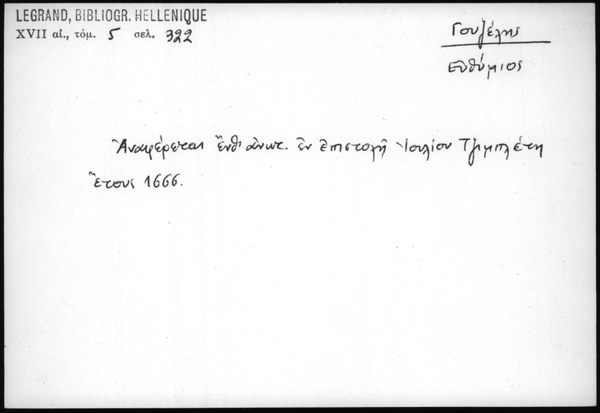 LEGRAND, BIBLIOGR. HELLENIQUE
XVII αἰ., τόμ. 5 σελ. 322
Γουζέλης
Εὐθύμιος
Ἀναφέρεται ἔνθ' ἀνωτ. ἐν ἐπιστολῇ Ἰουλίου Τζιμπλέτη
ἔτους 1666.